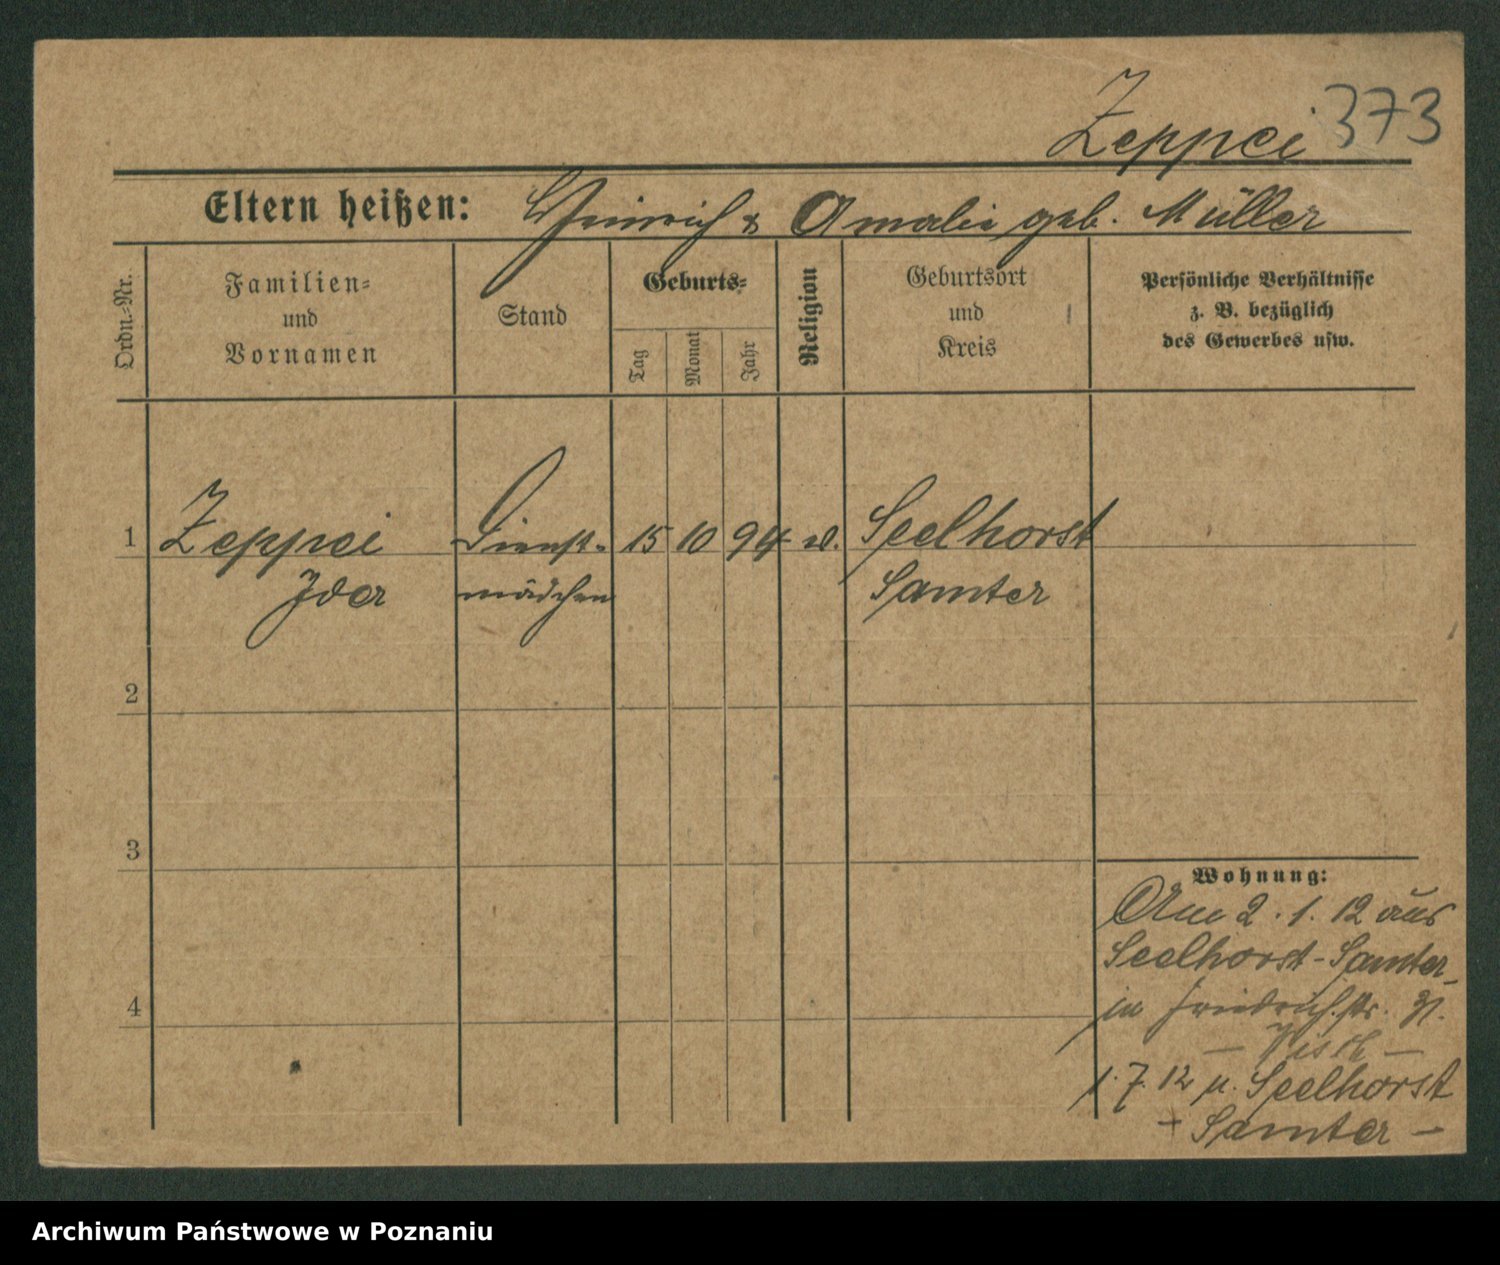 Zeppei 373
Eltern heißen: Heinrich & Amalie geb. Müller
Ordn.-Nr.
Familien-
und
Vornamen
Stand
Geburts-
Tag
Monat
Jahr
Religion
Geburtsort
und
Kreis
Persönliche Verhältnisse
z. B. bezüglich
des Gewerbes usw.
1 Zeppei Dienst- 15 10 94 Seelhorst
Ida mädchen Samter
2
3
4
Wohnung:
Am 2. 1. 12 aus
Seelhorst-Samter
in Friedrichstr.
1. 7. 12 n. Seelhorst
Samter –
Archiwum Państwowe w Poznaniu